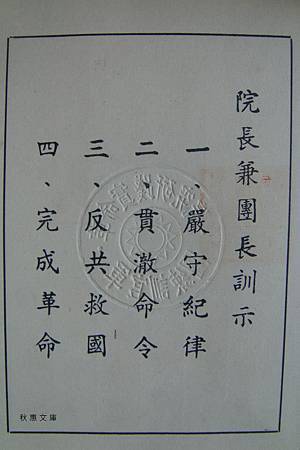 院長兼團長訓示
一、嚴守紀律
二、貫澈命令
三、反共救國
四、完成革命
秋惠文庫